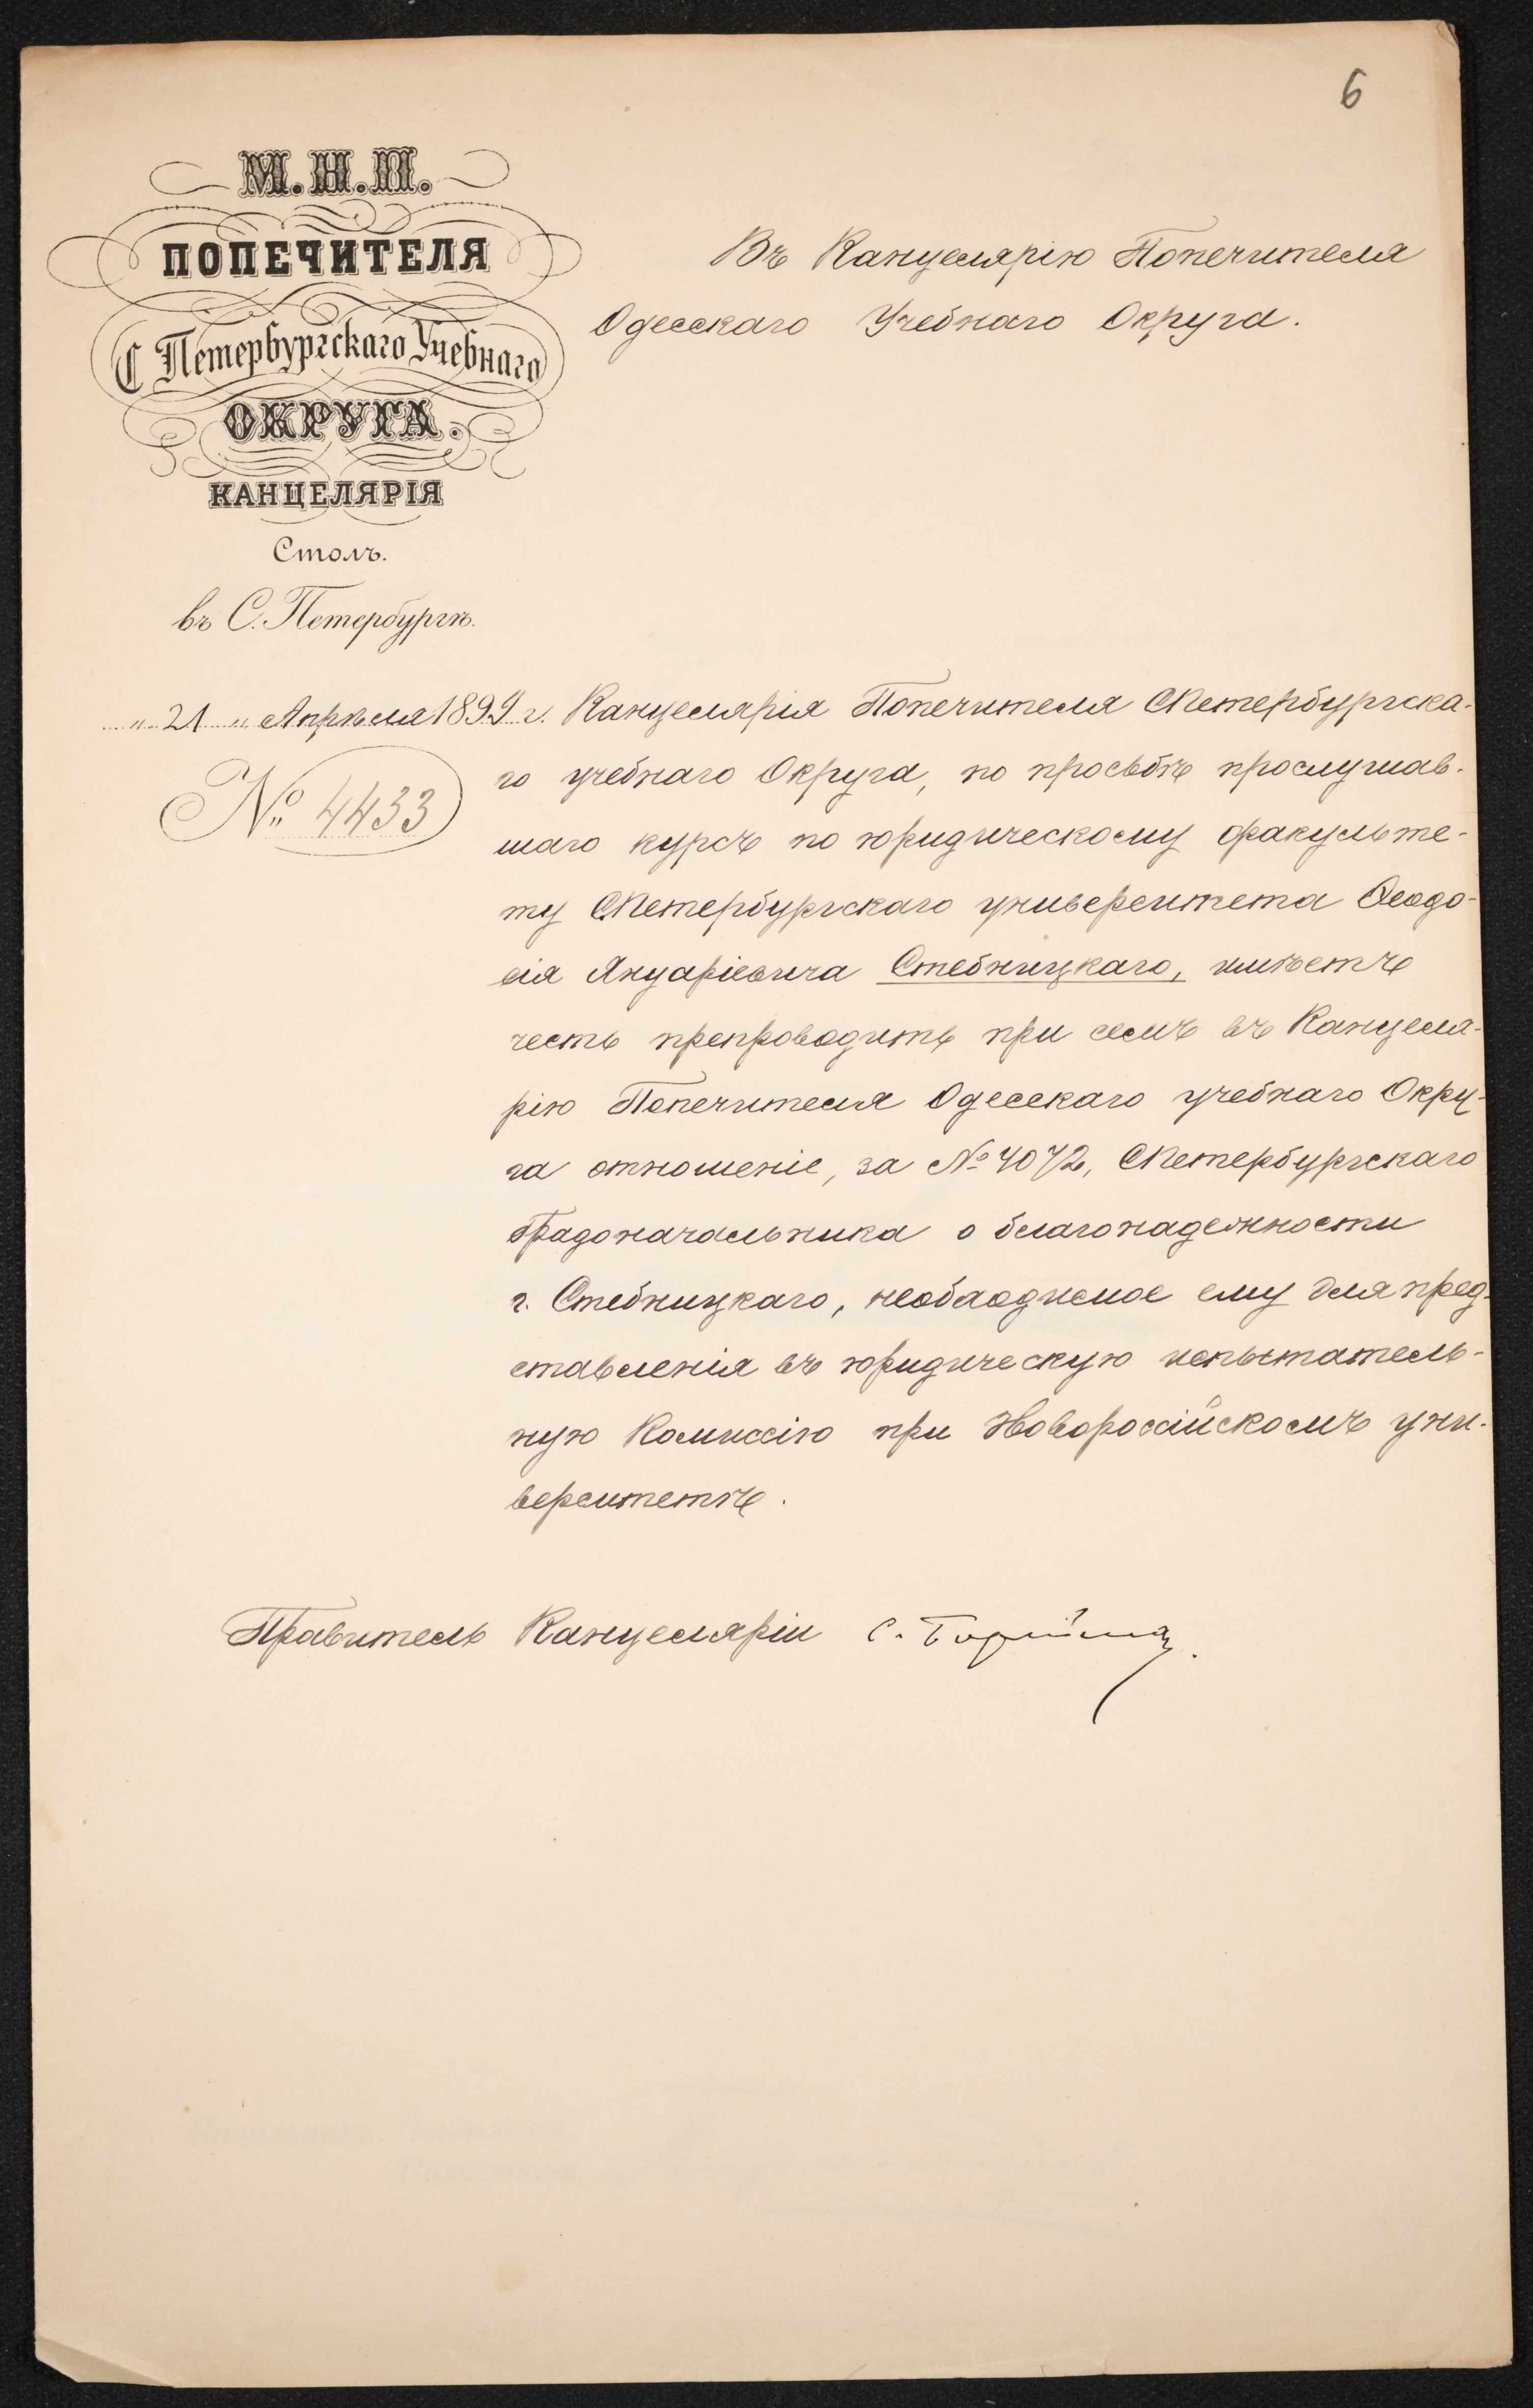 6
М.Н.П.
ПОПЕЧИТЕЛЯ
С Петербургскаго Учебнаго
ОКРУГА.
КАНЦЕЛЯРІЯ
Столъ.
въ С. Петербургѣ.
„ 21 „ Апрѣля 1899 г.
№ 4433
Въ Канцелярію Попечителя
Одесскаго Учебнаго Округа.
Канцелярія Попечителя СПетербургска-
го учебнаго Округа, по просьбѣ прослушав-
шаго курсъ по юридическому факульте-
ту СПетербургскаго университета Ѳеодо-
сія Януаріевича Стебницкаго, имѣетъ
честь препроводить при семъ въ Канцеля-
рію Попечителя Одесскаго учебнаго Окру-
га отношеніе, за № 4072, СПетербургскаго
Градоначальника о благонадежности
г. Стебницкаго, необходимое ему для пред-
ставленія въ юридическую испытатель-
ную Комиссію при Новороссійскомъ уни-
верситетѣ.
Правитель Канцеляріи С.